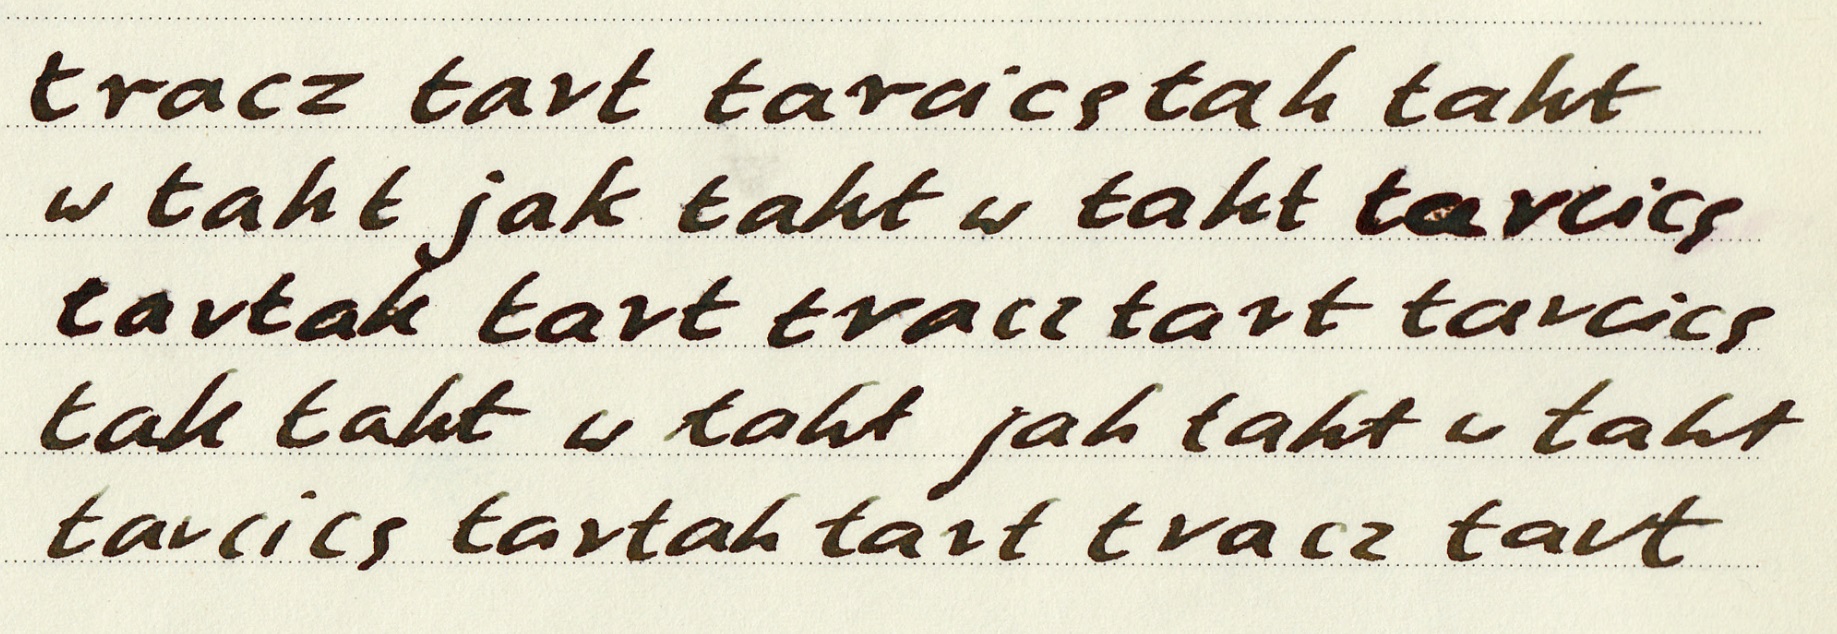 tracz tarł tarcicę tak takt
w takt jak takt w takt tarcicę
tartak tarł tracz tarł tarcicę
tak takt w takt jak takt w takt
tarcicę tartak tarł tracz tarł